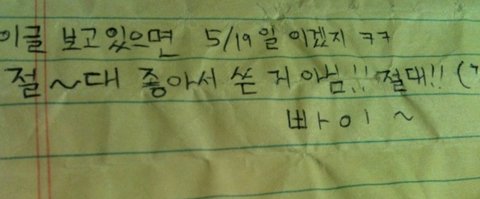 이글 보고있으면 5/19일 이겠지 ㅋㅋ
절~대 좋아서 쓴 거 아님!! 절대!! (
빠이~